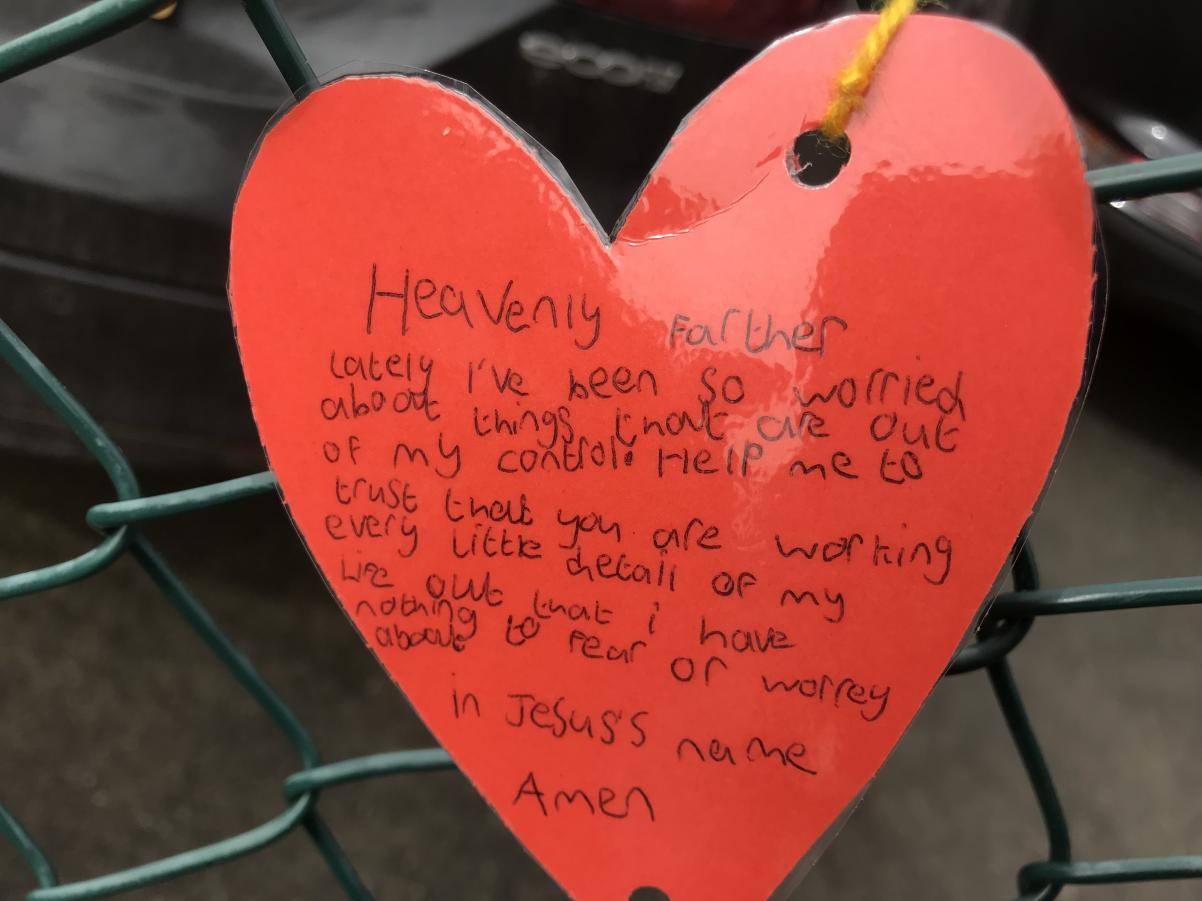 Heavenly Farther
Lately i've been so worried
about things that are out
of my control. Help me to
trust that you are working
every little detail of my
life out that i have
nothing to fear or worrey
about
in Jesus's name
Amen